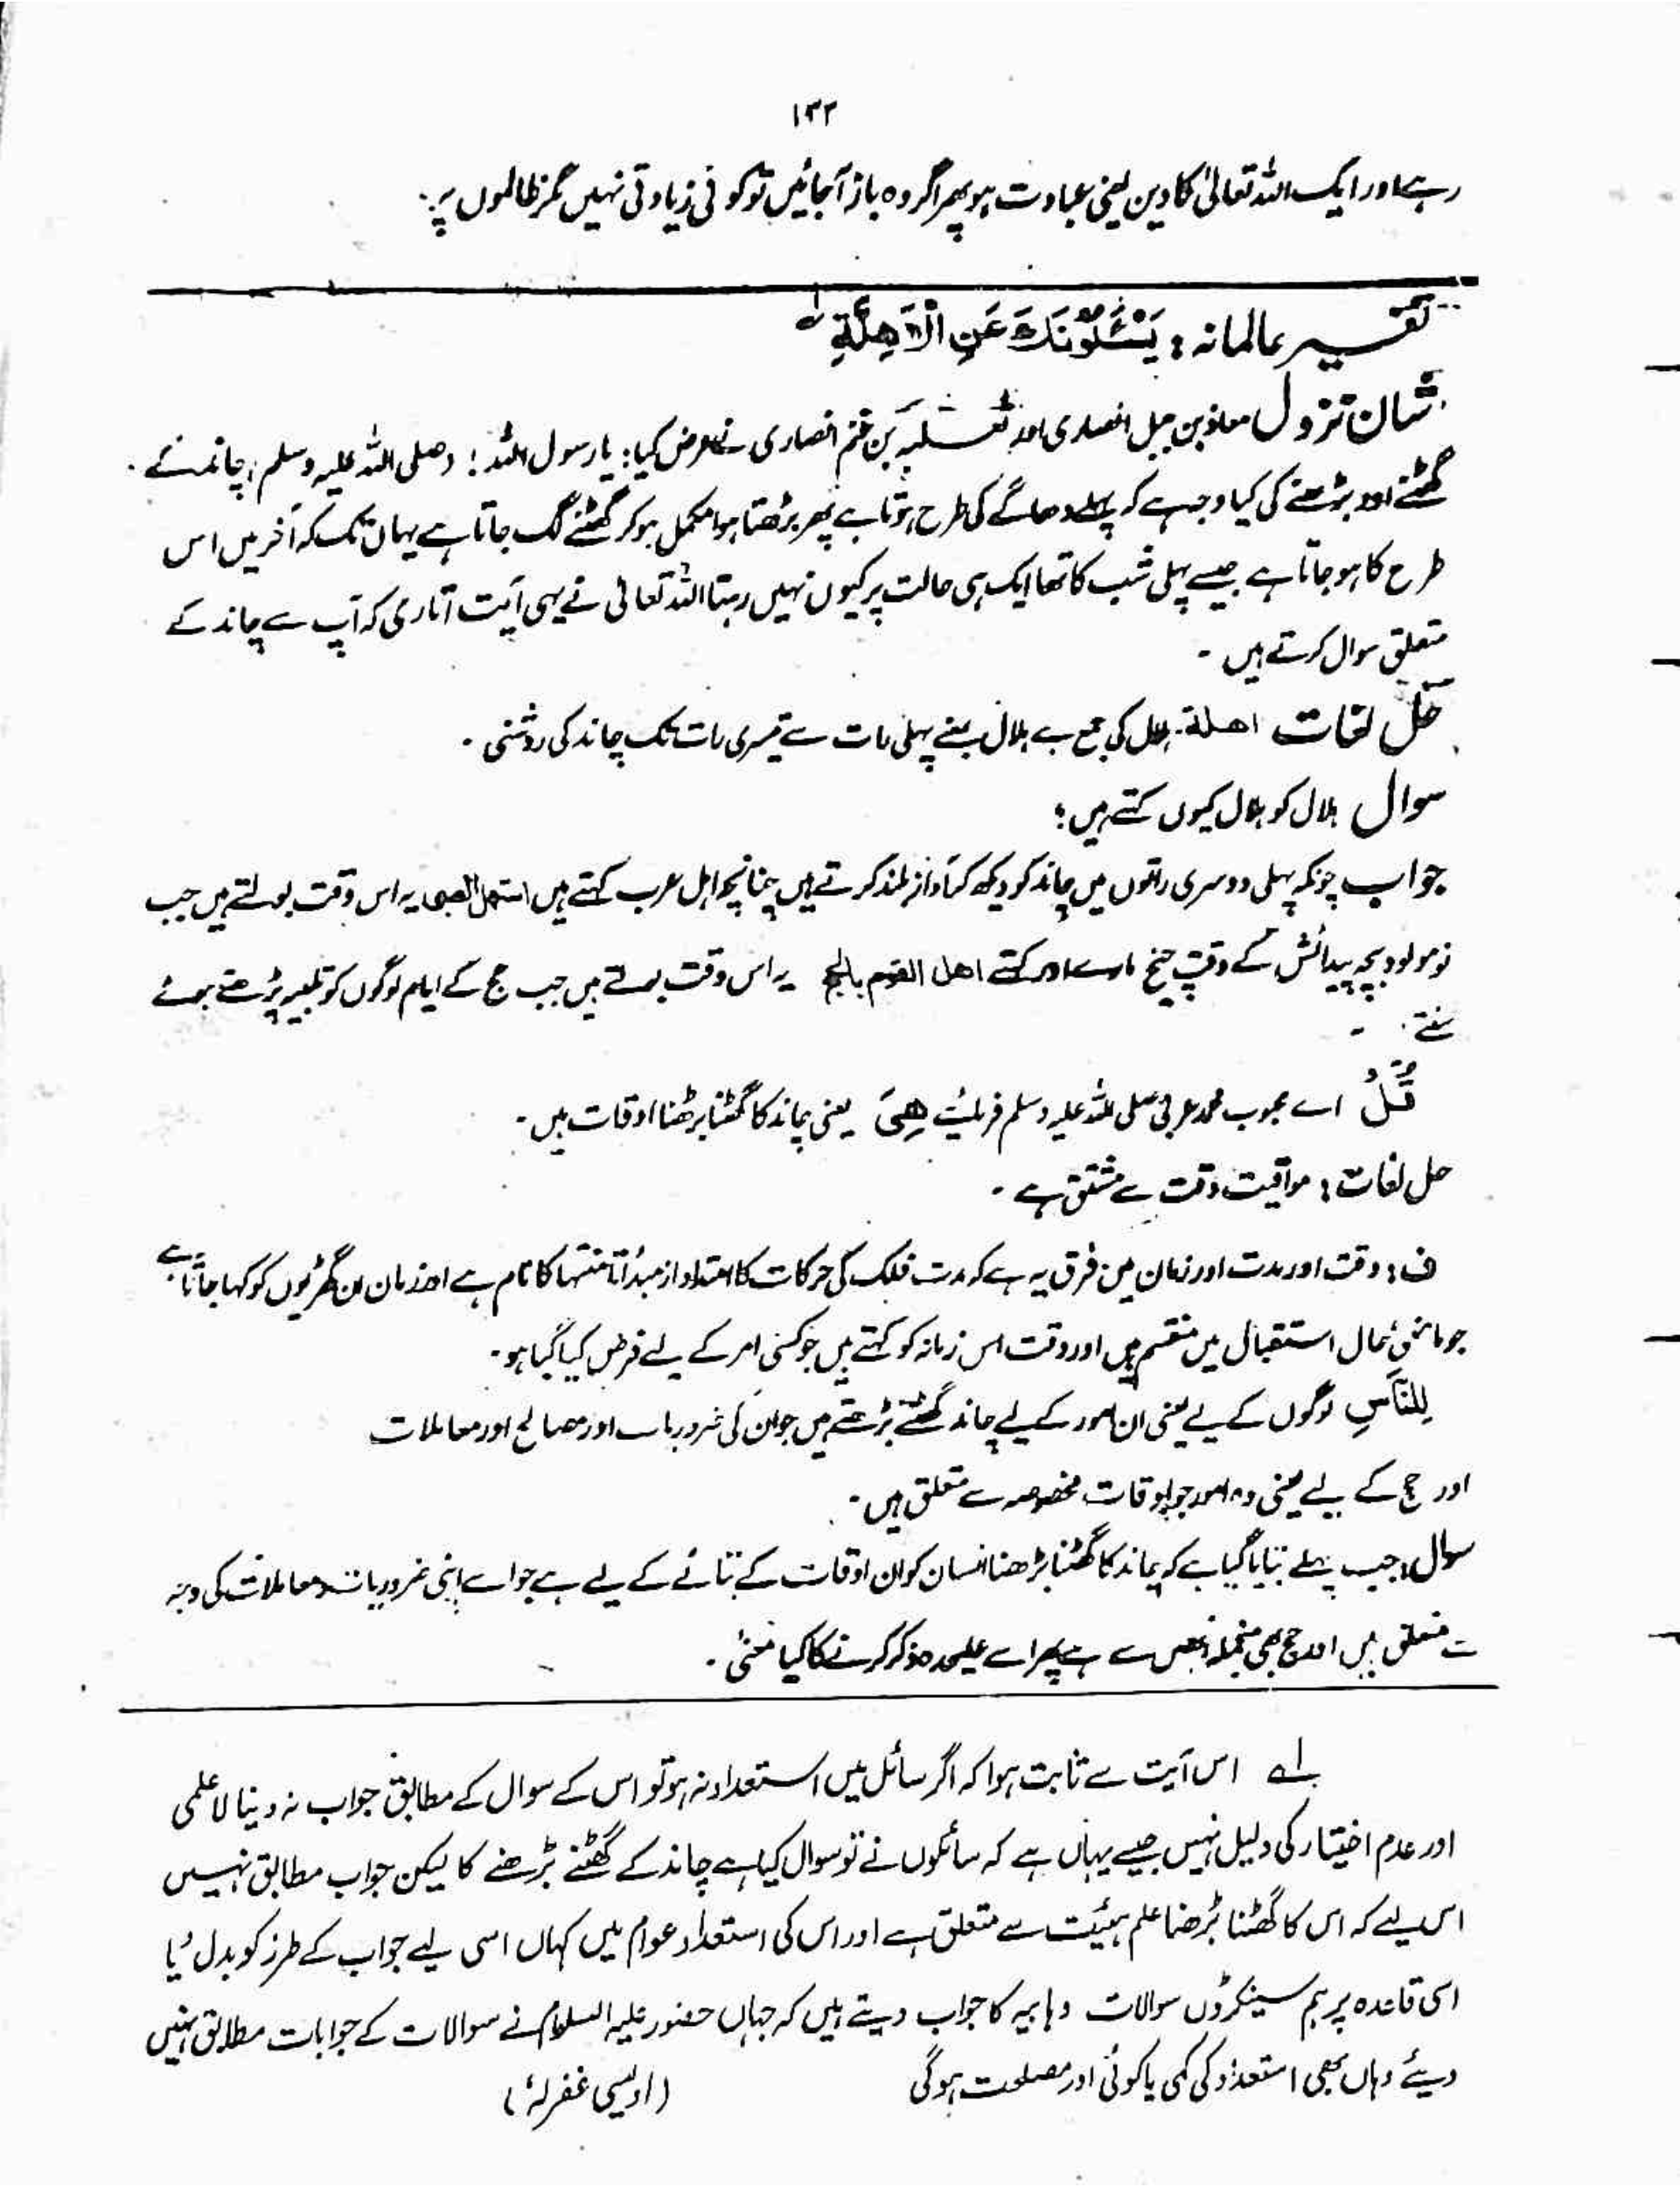 ۱۳۲
رہے اور ایک اللہ تعالیٰ کا دین یعنی عبادت ہو پھر اگر وہ باز آجائیں تو کوئی زیادتی نہیں مگر ظالموں پر :
تفسیر عالمانہ : یَسْئَلُوْنَكَ عَنِ الْاَهِلَّةِ ؎۱
شان نزول معاذ بن جبل انصاری اور ثعلبہ بن غنم انصاری نے عرض کیا : یا رسول اللہ ! (صلی اللہ علیہ وسلم) چاند کے
گھٹنے اور بڑھنے کی کیا وجہ ہے کہ پہلے دھاگے کی طرح ہوتا ہے پھر بڑھتا ہوا مکمل ہو کر گھٹنے لگ جاتا ہے یہاں تک کہ آخر میں اس
طرح کا ہو جاتا ہے جیسے پہلی شب کا تھا ایک ہی حالت پر کیوں نہیں رہتا اللہ تعالیٰ نے یہی آیت اتاری کہ آپ سے چاند کے
متعلق سوال کرتے ہیں ۔
حل لغات اھلۃ ہلال کی جمع ہے ہلال بمعنے پہلی رات سے تیسری رات تک چاند کی روشنی ۔
سوال ہلال کو ہلال کیوں کہتے ہیں ؟
جواب چونکہ پہلی دوسری راتوں میں چاند کو دیکھ کر آواز بلند کرتے ہیں چنانچہ اہل عرب کہتے ہیں استھل الصبی یہ اس وقت بولتے ہیں جب
نومولود بچہ پیدائش کے وقت چیخ مارے اور کہتے اھل القوم بالحج یہ اس وقت بولتے ہیں جب حج کے ایام لوگوں کو تلبیہ پڑھتے ہوئے
سنتے ۔
قُلْ اے محبوب محمد عربی صلی اللہ علیہ وسلم فرمائیے هِیَ یعنی چاند کا گھٹنا بڑھنا اوقات ہیں ۔
حل لغات : مواقیت وقت سے مشتق ہے ۔
ف : وقت اور مدت اور زمان میں فرق یہ ہے کہ مدت فلک کی حرکات کا امتداد از مبدأ تا منتہا کا نام ہے اور زمان ان گھڑیوں کو کہا جاتا ہے
جو ماضی حال استقبال میں منقسم ہیں اور وقت اس زمانہ کو کہتے ہیں جو کسی امر کے لیے فرض کیا گیا ہو ۔
لِلنَّاسِ لوگوں کے لیے یعنی ان امور کے لیے چاند گھٹتے بڑھتے ہیں جو ان کی ضروریات اور مصالح اور معاملات
اور حج کے لیے یعنی وہ امور جو اوقات مخصوصہ سے متعلق ہیں ۔
سوال : جب پہلے بتایا گیا ہے کہ چاند کا گھٹنا بڑھنا انسان کو ان اوقات کے بتانے کے لیے ہے جو اسے اپنی ضروریات و معاملات کی وجہ
متعلق ہیں اور حج بھی منجملہ سے ہے پھر اسے علیحدہ ذکر کرنے کا کیا معنیٰ ۔
؎۱ اس آیت سے ثابت ہوا کہ اگر سائل میں استعداد نہ ہو تو اس کے سوال کے مطابق جواب نہ دینا لاعلمی
اور عدم اختیار کی دلیل نہیں جیسے یہاں ہے کہ سائلوں نے تو سوال کیا ہے چاند کے گھٹنے بڑھنے کا لیکن جواب مطابق نہیں
اس لیے کہ اس کا گھٹنا بڑھنا علم ہیئت سے متعلق ہے اور اس کی استعداد عوام میں کہاں اسی لیے جواب کے طرز کو بدل دیا
اسی قاعدہ پر ہم سینکڑوں سوالات وہابیہ کا جواب دیتے ہیں کہ جہاں حضور علیہ السلام نے سوالات کے جوابات مطابق نہیں
دیئے وہاں بھی استعداد کی کمی یا کوئی اور مصلحت ہوگی (اویسی غفرلہ)